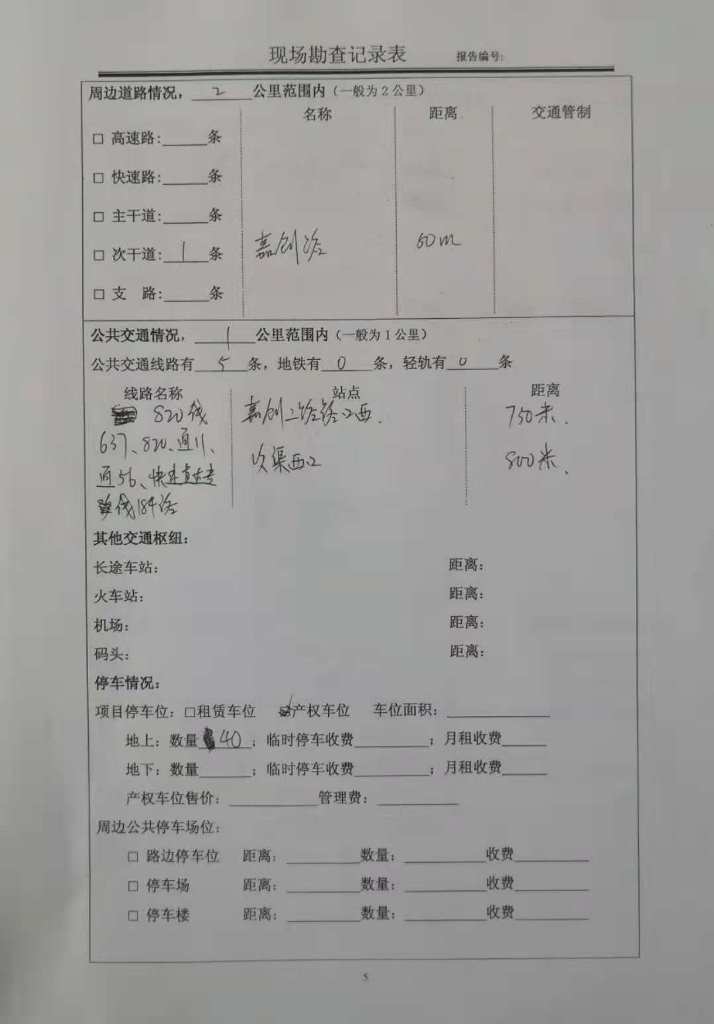 现场勘查记录表 报告编号:
周边道路情况, 2 公里范围内（一般为2公里）
名称 距离 交通管制
□ 高速路:____条
□ 快速路:____条
□ 主干道:____条
□ 次干道: 1 条 嘉创路 50m
□ 支 路:____条
公共交通情况, 1 公里范围内（一般为1公里）
公共交通线路有 5 条, 地铁有 0 条, 轻轨有 0 条
线路名称 站点 距离
820线 嘉创二路路口西. 750米.
637、820、通11、 次渠西口 800米.
通56、快速直达专
线184路
其他交通枢纽:
长途车站: 距离:
火车站: 距离:
机场: 距离:
码头: 距离:
停车情况:
项目停车位: □租赁车位 ☑产权车位 车位面积:________
地上: 数量 40 ; 临时停车收费________; 月租收费____
地下: 数量____; 临时停车收费________; 月租收费____
产权车位售价: ________管理费: ________
周边公共停车场位:
□ 路边停车位 距离: ________数量: ________收费________
□ 停车场 距离: ________数量: ________收费________
□ 停车楼 距离: ________数量: ________收费________
5